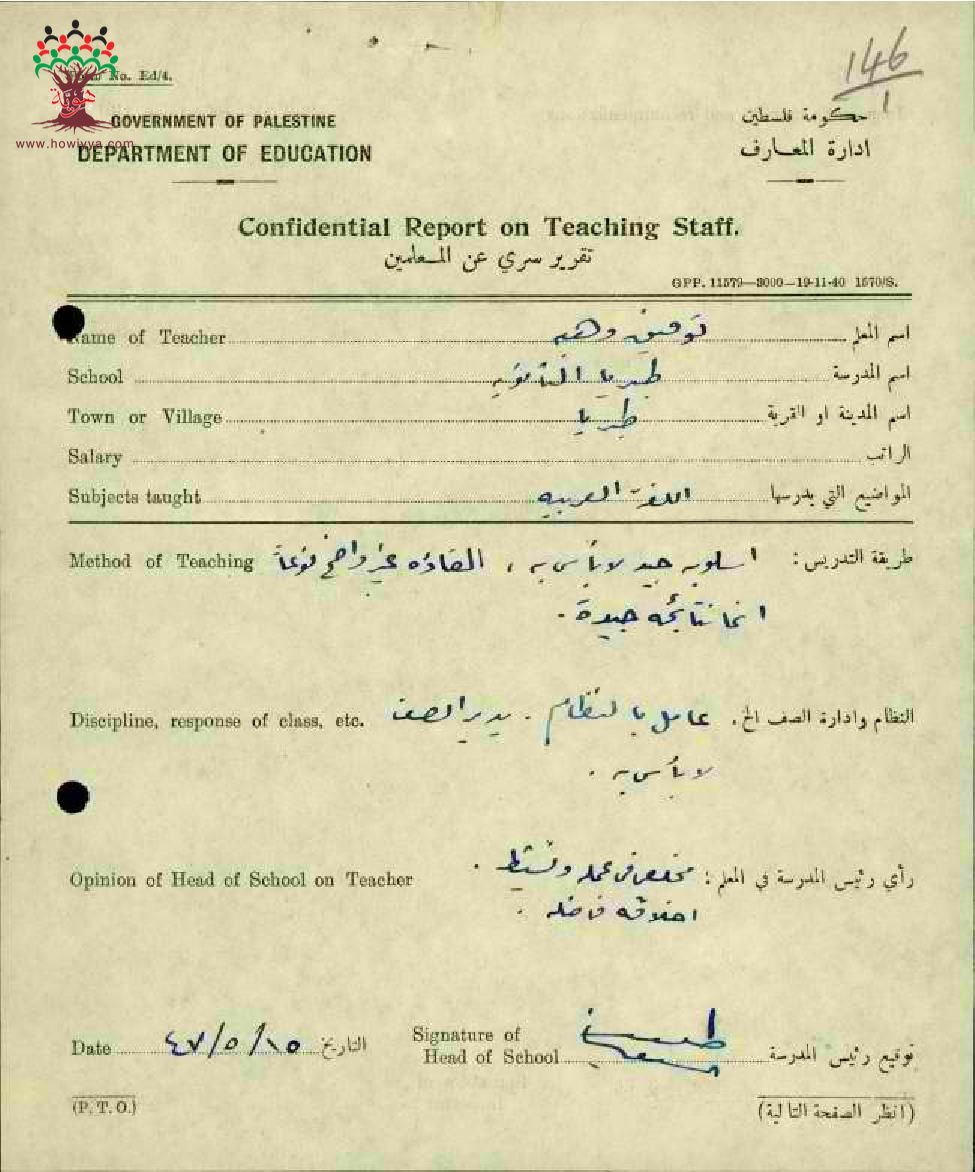 146
1
Form No. Ed/4.
هوية
www.howiyya.com
GOVERNMENT OF PALESTINE
DEPARTMENT OF EDUCATION
حكومة فلسطين
ادارة المعارف
Confidential Report on Teaching Staff.
تقرير سري عن المعلمين
GPP. 11579—3000—19-11-40 1570/S.
Name of Teacher توفيق وهبه اسم المعلم
School طبريا الثانويه اسم المدرسة
Town or Village طبريا اسم المدينة او القرية
Salary الراتب
Subjects taught اللغة العربيه المواضيع التي يدرسها
Method of Teaching طريقة التدريس : اسلوبه جيد لا بأس به ، القاؤه غير واضح نوعاً
انما نتائجه جيدة .
Discipline, response of class, etc. النظام وادارة الصف الخ . عامل بالنظام . يدير الصف
لا بأس به .
Opinion of Head of School on Teacher رأي رئيس المدرسة في المعلم : مخلص في عمله ونشيط .
اخلاقه فاضله .
Date ١٥/٥/٤٧ التاريخ
Signature of
Head of School توقيع رئيس المدرسة
(P. T. O.)
(انظر الصفحة التالية)